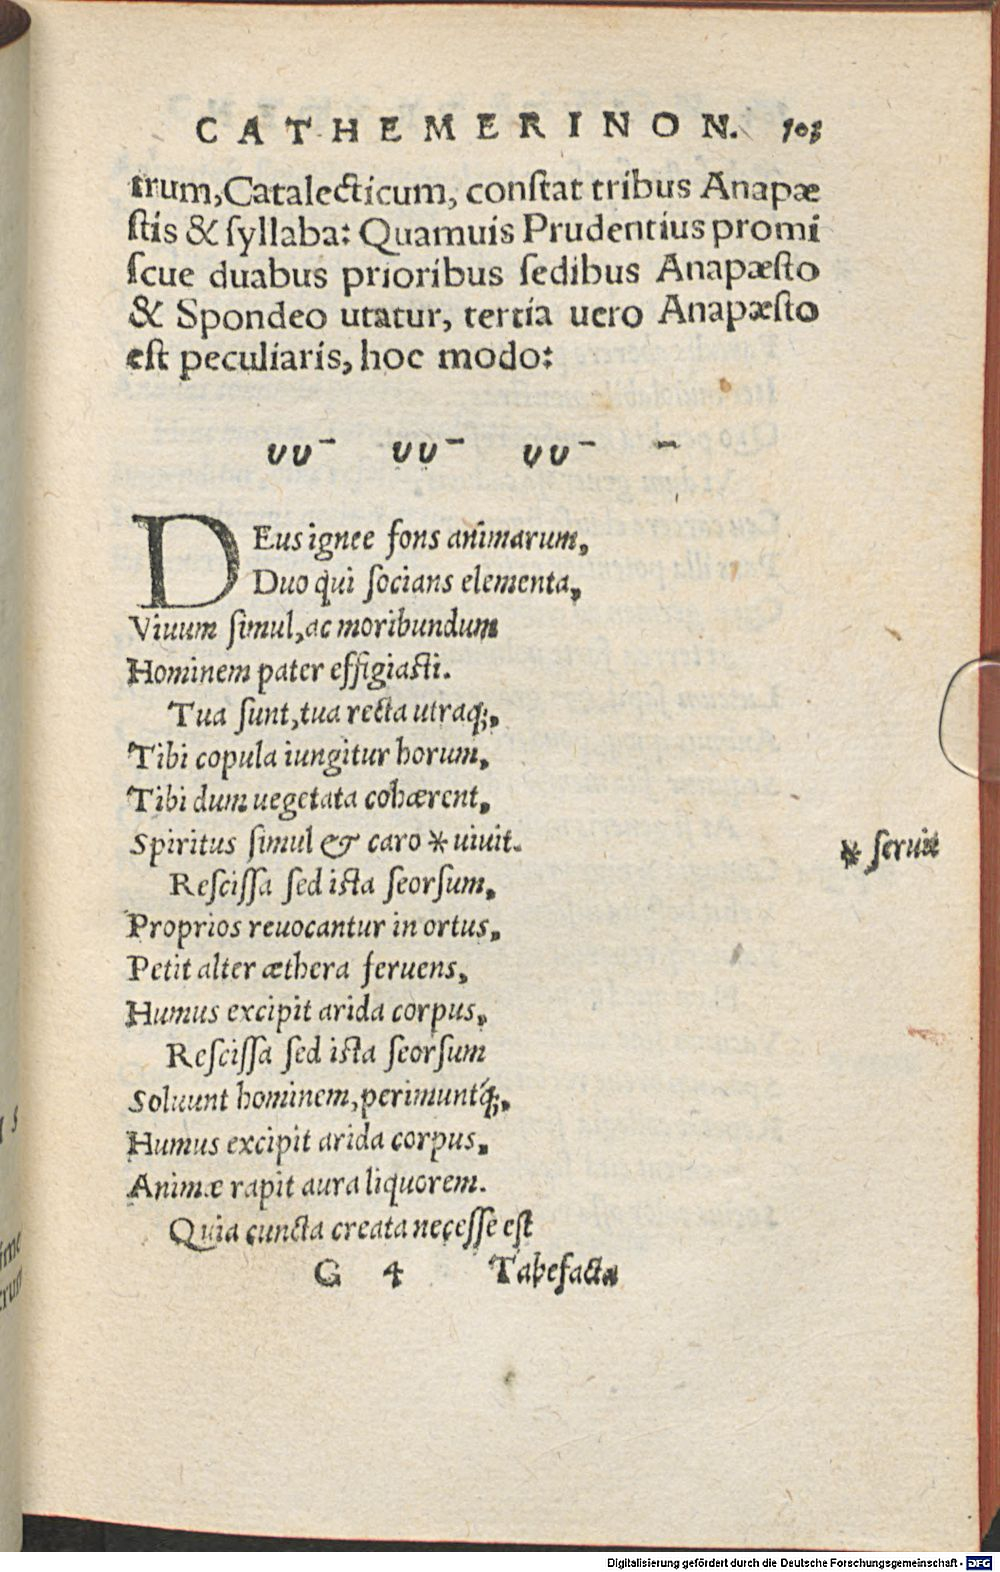 CATHEMERINON. 103
trum, Catalecticum, constat tribus Anapæ
stis & syllaba: Quamuis Prudentius promi
scue duabus prioribus sedibus Anapæsto
& Spondeo utatur, tertia uero Anapæsto
est peculiaris, hoc modo:
υυ– υυ– υυ– –
DEus ignee fons animarum,
Duo qui socians elementa,
Viuum simul, ac moribundum
Hominem pater effigiasti.
Tua sunt, tua recta utraq;,
Tibi copula iungitur horum,
Tibi dum uegetata cohærent,
Spiritus simul & caro * uiuit.
* seruit
Rescissa sed ista seorsum,
Proprios reuocantur in ortus,
Petit alter æthera feruens,
Humus excipit arida corpus,
Rescissa sed ista seorsum
Soluunt hominem, perimuntq́;,
Humus excipit arida corpus,
Animæ rapit aura liquorem.
Quia cuncta creata necesse est
G 4 Tabefacta
Digitalisierung gefördert durch die Deutsche Forschungsgemeinschaft - DFG